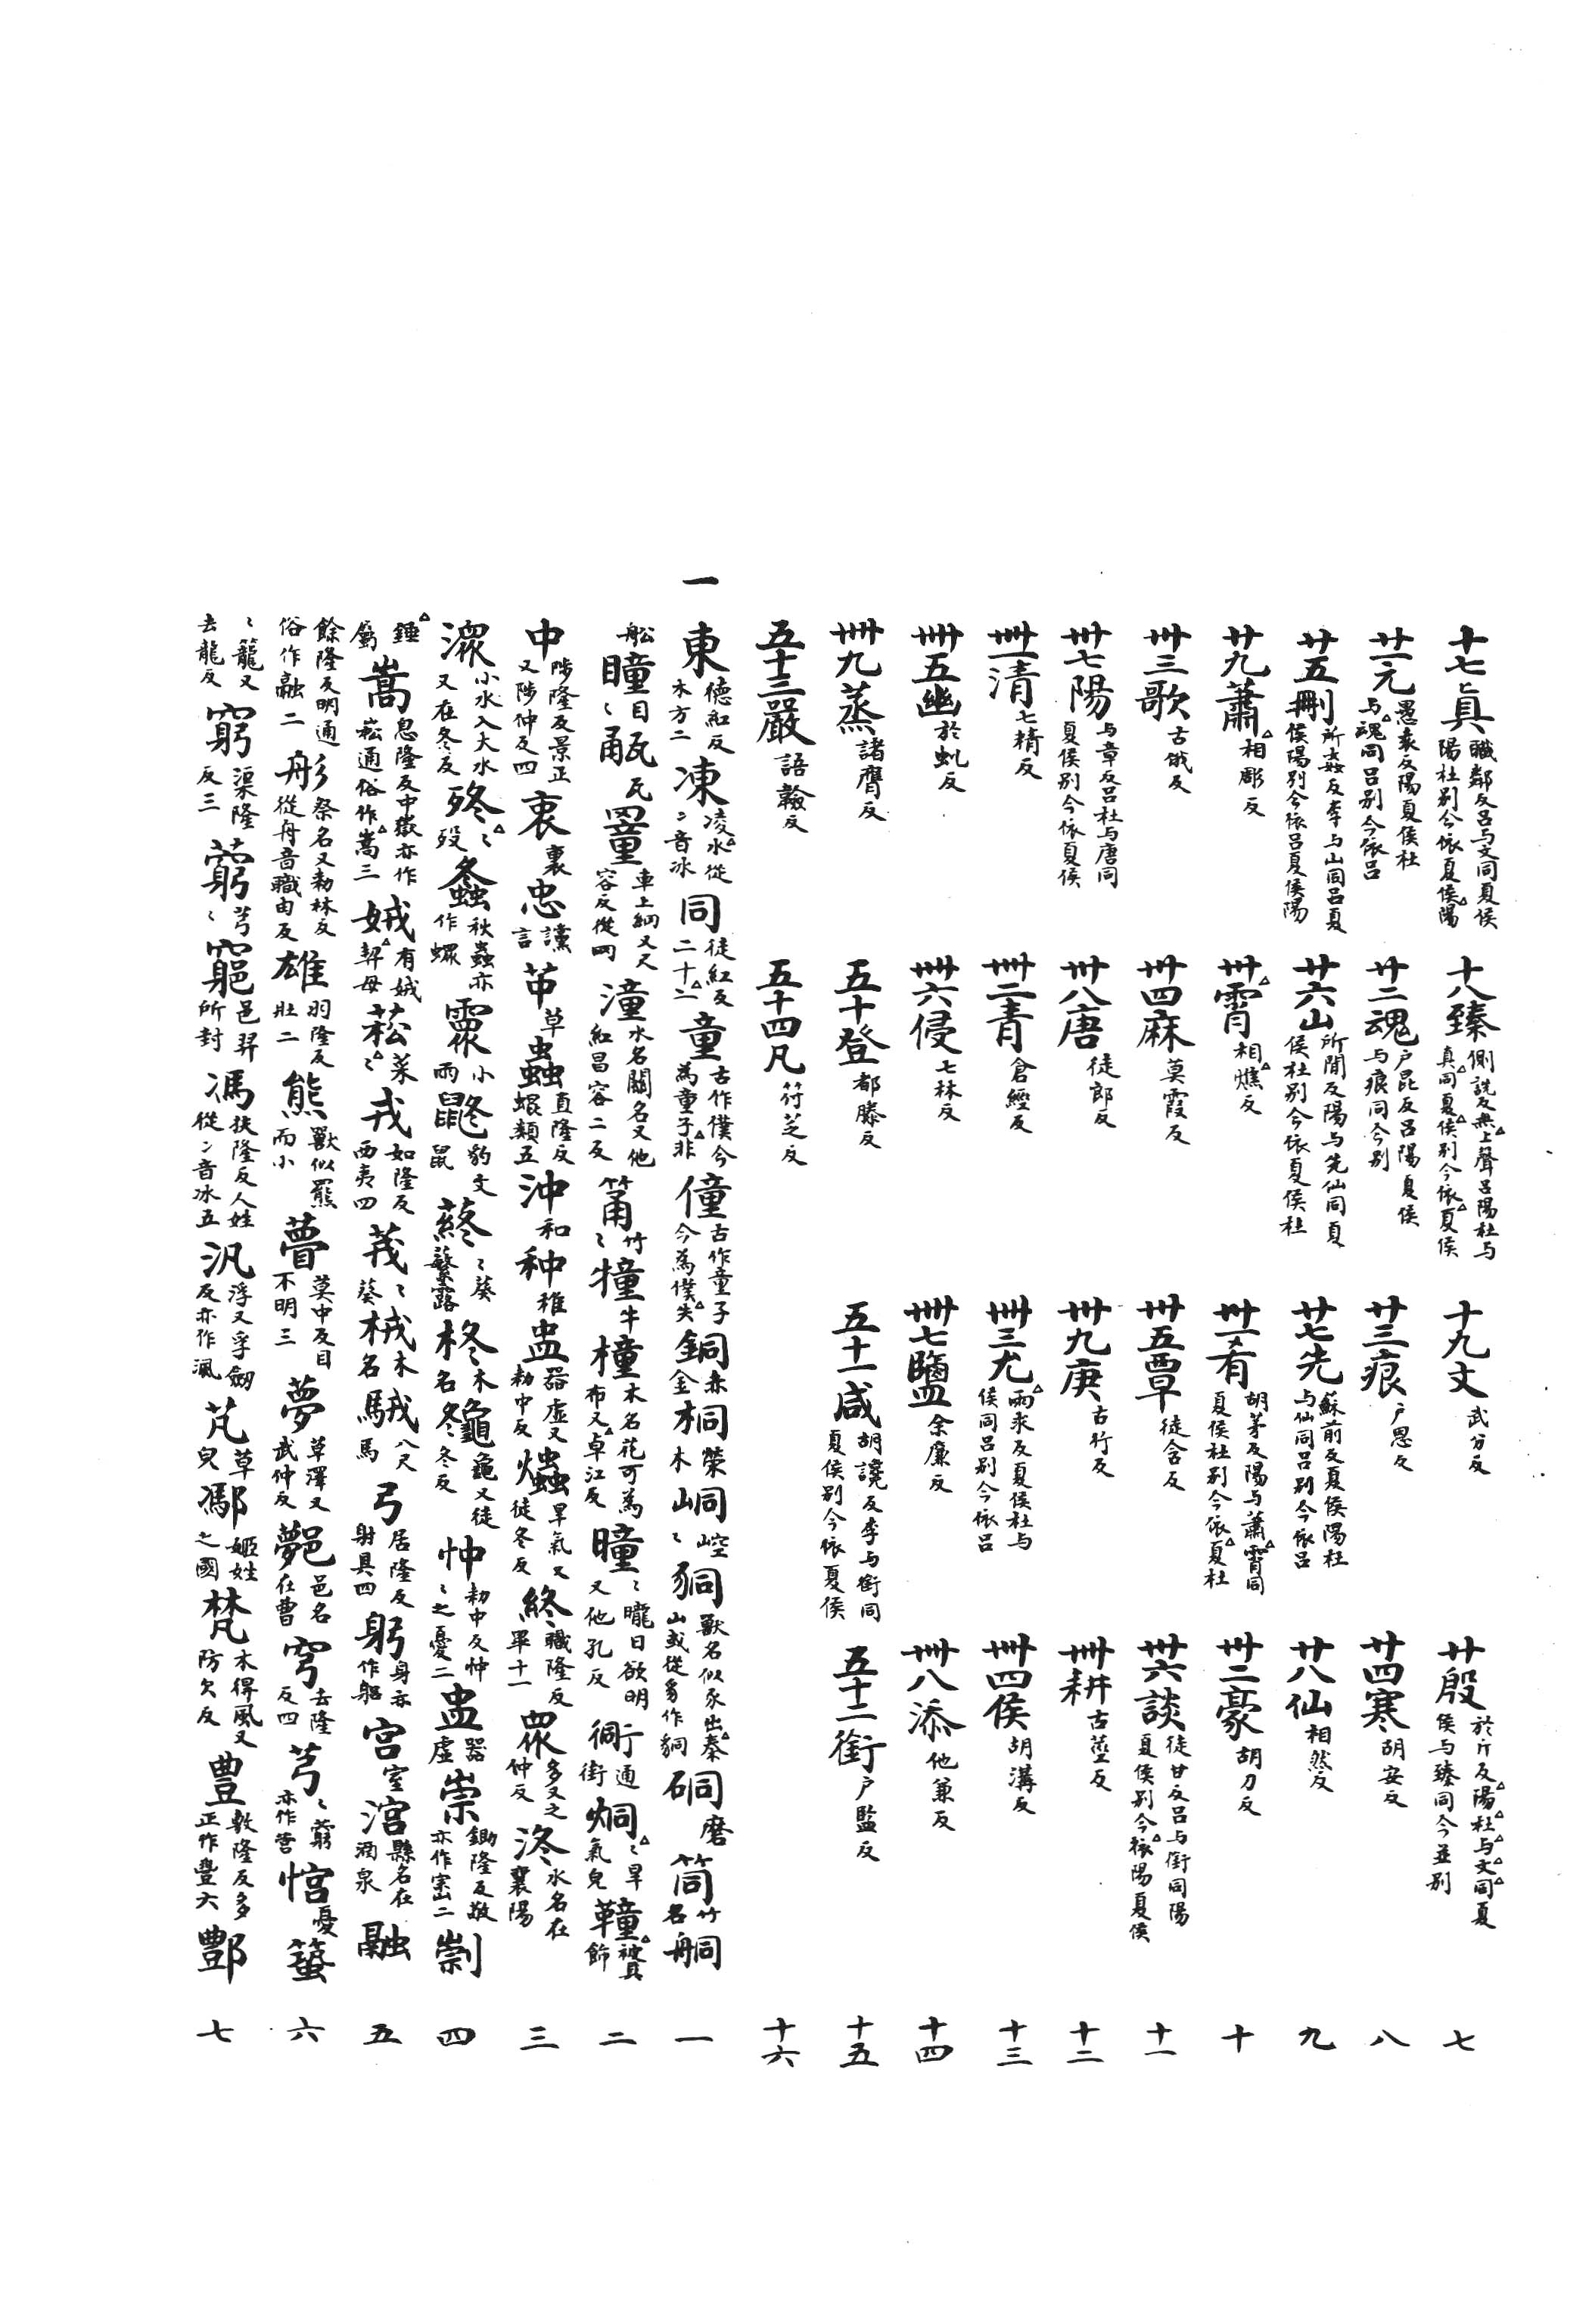 十七真職鄰反呂与文同夏侯陽杜別今依夏侯陽 十八臻側詵反無上聲呂陽杜与真同夏侯別今依夏侯 十九文武分反 廿殷於斤反陽杜与文同夏侯与臻同今並別 七
廿一元愚袁反陽夏侯杜与魂同呂別今依呂 廿二魂戶昆反呂陽夏侯与痕同今別 廿三痕戶恩反 廿四寒胡安反 八
廿五刪所姦反李与山同呂夏侯陽別今依呂夏侯陽 廿六山所閒反陽与先仙同夏侯杜別今依夏侯杜 廿七先蘇前反夏侯陽杜与仙同呂別今依呂 廿八仙相然反 九
廿九蕭相彫反 卅霄相燋反 卅一肴胡茅反陽与蕭霄同夏侯杜別今依夏杜 卅二豪胡刀反 十
卅三歌古俄反 卅四麻莫霞反 卅五覃徒含反 卅六談徒甘反呂与銜同陽夏侯別今依陽夏侯 十一
卅七陽与章反呂杜与唐同夏侯別今依夏侯 卅八唐徒郎反 卅九庚古行反 卌耕古莖反 十二
卌一清七精反 卌二青倉經反 卌三尤雨求反夏侯杜与侯同呂別今依呂 卌四侯胡溝反 十三
卌五幽於虬反 卌六侵七林反 卌七鹽余廉反 卌八添他兼反 十四
卌九蒸諸膺反 五十登都滕反 五十一咸胡讒反李与銜同夏侯別今依夏侯 五十二銜戶監反 十五
五十三嚴語𩏩反 五十四凡符芝反 十六
一東德紅反木方二 凍凌水從冫冫音冰 同徒紅反二十二 童古作僮今為童子非 僮古作童子今為僕失 銅赤金 桐木榮 峒崆〻 㣚獸名似豕出泰山或從豸作狪 硐磨 筒竹名 舸 一
舩 瞳目〻 㼧瓦 罿車上網又尺容反從罒 潼水名關名又他紅昌容二反 筩竹〻 犝牛 橦木名花可為布又卓江反 曈〻曨日欲明又他孔反 衕通街 烔〻旱氣皃 䡴被具飾 二
中陟隆反景正又陟仲反四 衷裏 忠讜言 䇡草 蟲直隆反蜫類五 沖和 种稚 盅器虛又勑中反 爞旱氣又徒冬反 終職隆反畢十一 眾多又之仲反 泈水名在襄陽 三
潨小水入大水又在冬反 㱡〻歿 螽秋蟲亦作螺 霥小雨 鼨豹文鼠 蔠〻葵蘩露 柊木名 𪚰龜又徒冬冬反 忡勑中反忡〻之憂二 盅器虛 崇鋤隆反敬亦作崈二 剬 四
錘屬 嵩息隆反中嶽亦作崧通俗作嵩三 娀有娀契母 菘菜〻 戎如隆反西夷四 茙〻葵 栻木名 駥八尺馬 弓居隆反射具四 躬身亦作躳 宮室 涫縣名在酒泉 融 五
餘隆反明通俗作融二 肜祭名又勑林反從舟音職由反 雄羽隆反壯二 熊獸似羆而小 瞢莫中反目不明三 夢草澤又武仲反 鄸邑名在曹 穹去隆反四 芎〻藭亦作营 悺憂 䖝 六
〻籠又去龍反 窮渠隆反三 藭芎〻 竆邑羿所封 馮扶隆反人姓從冫冫音冰五 汎浮又孚劒反亦作渢 芃草皃 鄸姬姓之國 梵木得風又防欠反 豊敷隆反多正作豐六 酆 七